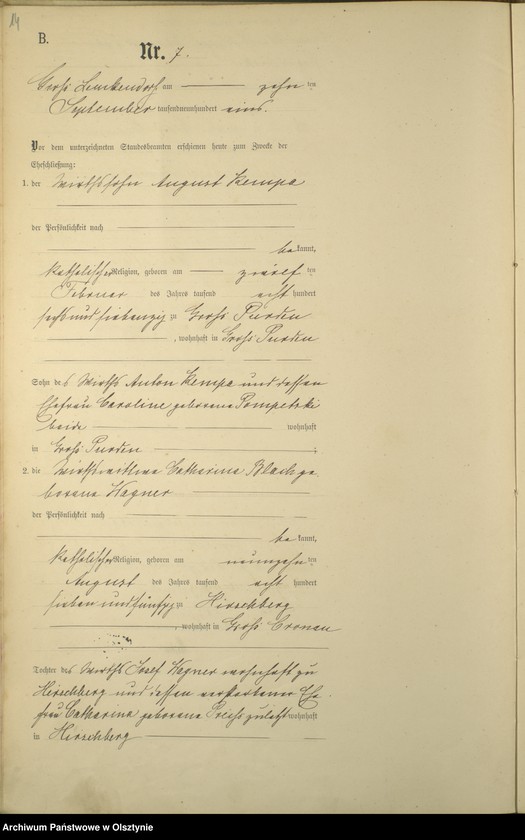 14
B.
Nr. 7.
Groß Lemkendorf am zehn ten
September tausendneunhundert eins.
Vor dem unterzeichneten Standesbeamten erschienen heute zum Zwecke der
Eheschließung:
1. der Wirthssohn August Kempa
der Persönlichkeit nach
be kannt,
katholischer Religion, geboren am zwölf ten
Februar des Jahres tausend acht hundert
sechs und siebenzig zu Groß Purden
, wohnhaft in Groß Purden
Sohn des Wirths Anton Kempa und dessen
Ehefrau Caroline geborene Pompetzki
beide wohnhaft
in Groß Purden
2. die Wirthswittwe Catharina Black ge
borene Wagner
der Persönlichkeit nach
be kannt,
katholischer Religion, geboren am neunzehn ten
August des Jahres tausend acht hundert
sieben und fünfzig zu Hirschberg
, wohnhaft in Groß Cronau
Tochter des Wirths Josef Wagner wohnhaft zu
Hirschberg und dessen verstorbener Ehe
frau Catharina geborene zuletzt wohnhaft
in Hirschberg
Archiwum Państwowe w Olsztynie